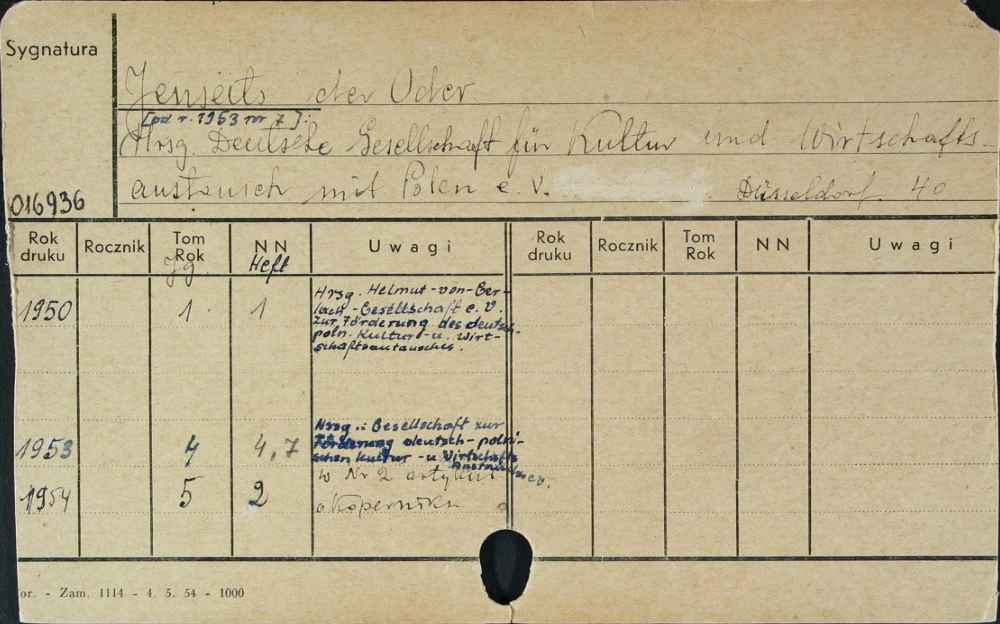 Sygnatura
Jenseits der Oder
[od r. 1953 nr 7]:
Hrsg. Deutsche Gesellschaft für Kultur und Wirtschafts-
austausch mit Polen e.V. Düsseldorf. 40
016936
Rok druku Rocznik Tom Rok NN Uwagi Rok druku Rocznik Tom Rok NN Uwagi
Jg. Heft
1950 1 1 Hrsg. Helmut-von-Ger-
lach-Gesellschaft e.V.
zur Förderung des deutsch-
poln. Kultur- u. Wirt-
schaftsautausches.
1953 4 4,7 Hrsg.: Gesellschaft zur
Förderung deutsch-polni-
schen Kultur- u Wirtschafts
1954 5 2 w Nr 2 artykuł
o Koperniku
or. - Zam. 1114 - 4. 5. 54 - 1000